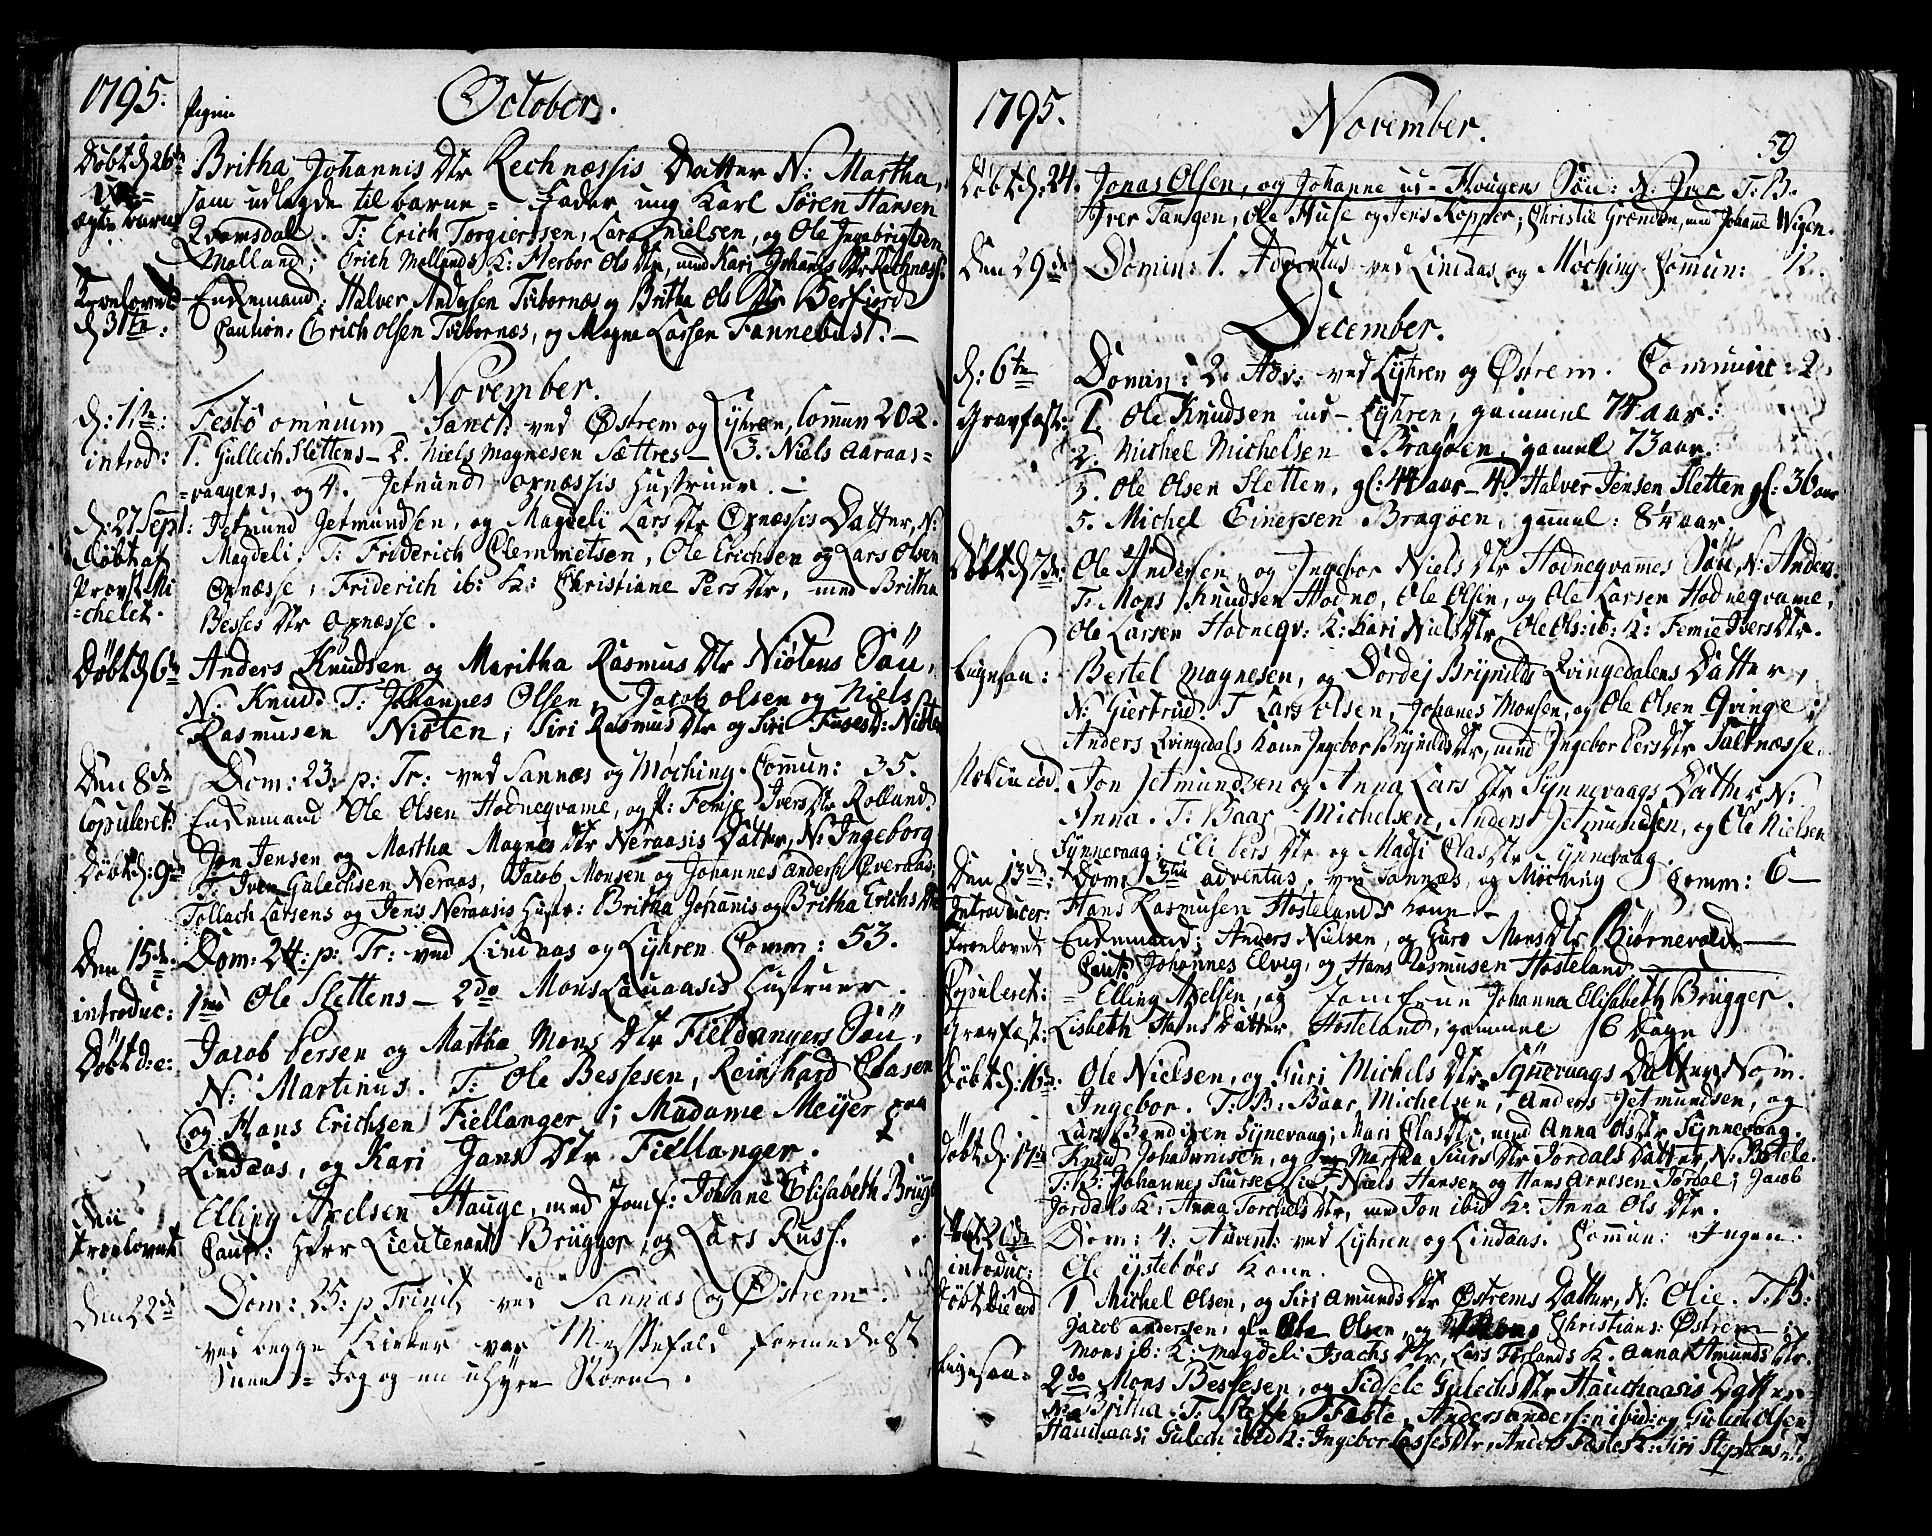 1795. October.
Pigen
Døbt d: 26de Britha Johannis Dtr Rechnæssis Datter N: Martha,
som udlagde til barne = Fader ung Karl Søren Hansen
ægte barn Qvamsdal. T: Erich Torgierssen, Lars Nielsen, og Ole Ingebrigtsen
Molland; Erich Mollands K: Herbor Ols Dtr, med Kari Johanis Dtr Rechnæss:
Trolovet Enkemand: Halver Andersen Tvibornæs og Britha Ols Dtr Berfiord
d: 31te: Caution: Erich Olsen Tvibornæs, og Magne Larssen Fannebust. —
November.
d: 1te: Festo omnium Sanct: ved Østrem og Lyhren, Comun 202.
introd: 1. Gullech Slettens — 2. Niels Magnesen Sættres — 3. Niels Aaraas=
=vaagens, og 4. Jetmund Oxnæssis Hustruer. —
d: 27 Sept: Jetmund Jetmundsen, og Magdeli Lars Dtr Oxnæssis Datter, N:
Døbt af Magdeli. T: Friderich Clemmetsen, Ole Erichsen og Lars Olsen
Provst Mi Oxnæsse, Friderich ib: K: Christiane Pers Dtr, med Britha
=chelet. Besses Dtr Oxnæsse.
Døbt d: 6te Anders Knudsen og Maritha Rasmus Dtr Niötens Sön,
N: Knud. T: Johannes Olsen, Jacob Olsen og Niels
Rasmusen Niöten, Siri Rasmus Dtr og Siri
Den 8de Dom: 23: p: Tr: ved Sannæs og Møching. Comun: 35.
Copuleret: Enkemand Ole Olsen Hodneqvame, og P: Femje Ivers Dtr Rolland.
Døbt d: 9de Jon Jensen og Martha Magnes Dtr Neraasis Datter, N: Ingeborg
T: Iver Gulechsen Neraas, Jacob Monsen og Johannes Anders: Øveraas,
Tollach Larsens og Jens Neraasis Hustr: Britha Johannis og Britha Erichs Dtr
Den 15de Dom: 24: p: Tr: ved Lindaas og Lyhren Comm: 53.
introduc: 1mo Ole Slettens — 2do Mons Lauaasis Hustruer.
Døbt d:e: Jacob Persen og Martha Mons Dtr Fieldangers Sön,
N: Martinus. T: Ole Bessesen, Reinhard Clasen
og Hans Erichsen Fiellanger; Madame Meijer paa
Lindaas, og Kari Jans Dtr Fiellanger.
Elling Axelsen Hauge, med Jomf: Johane Elisabeth Brügg
Trolovet Caut: Herr Lieutenant Brügger, og Lars Russ.
Den 22de Dom: 25: p Trinit. ved Sannæs og Østrem.
ved begge Kirker var Messefald formedelst
Snee = Fog og en uhyre Storm.
1795. November.
59
Døbt d: 24. Jonas Olsen, og Johanne us – Hougens Sön: N: Iver T: B:
Iver Tangen, Ole Huse og Jens Kopper; Christie Grønden, med Johanne Wigen.
Den 29de Domin: 1. Adventus ved Lindaas og Møching. Comun: 12.
December.
d: 6te Domin: 2. Adv: ved Lyhren og Østrem. Communic: 2.
Gravfæst: 1. Ole Knudsen us – Lyhren, gammel 74 aar.
2. Michel Michelsen Bragøen, gamel 73 aar.
3. Ole Olsen Sletten, gl: 44 aar – 4. Halver Jensen Sletten gl: 36 aar
5. Michel Einersen Bragøen, gamel: 84 aar
Døbt d: 7de: Ole Andersen, og Ingebor Niels Dtr Hodneqvammes Sön, N: Anders.
T: Mons Knudsen Hodne, Ole Olsen, og Ole Larsen Hodneqvame,
Ole Larsen Hodneqv: K: Kari Niels Dtr, Ole Ols: ib: K: Femie Ivers Dtr.
Ligesaa: Bertel Magnesen, og Dordej Brynilds Qvingedalens Datter,
N: Giertrud. T: Lars Olsen, Johanes Monsen, og Ole Olsen Qvinge;
Anders Qvingedals Kone Ingebor Brynilds Dtr, med Ingebor Pers Dtr Saltnæsse.
Jon Jetmundsen og Anna Lars Dtr Synnevaags Datter N:
Anna. T: Baar Michelsen, Anders Jetmundsen, og Ole Nielsen
Synnevaag; Eli Pers Dtr og Madsi Clas Dtr Synnevaag.
Den 13de: Dom: 3tiæ Adventus, ved Sannæs, og Møching Comm: 6 —
Introducer: Hans Rasmusen Hostelands Kone. –
Troelovet Enkemand: Anders Nielsen, og Guro Mons Dtr Biørnevold —
Caut: Johannes Elvig, og Hans Rasmusen Hosteland —
Copuleret: = Elling Axelsen, og Jomfrue Johanna Elisabeth Brügger.
Gravfæst: Lisbeth Hans Datter Hosteland, gammel 16 Dage
Døbt d: 16de: Ole Nielsen, og Guri Michels Dtr Synnevaags Datter, Nom.
Ingebor. T: B: Baar Michelsen, Anders Jetmundsen, og
Lars Bendixen Synnevaag; Mari Clas Dtr, med Anna Ols Dtr Synnevaag.
Døbt d: 17de Knud Johannisen, og Martha Siurs Dtr Jordals Datter, N: Botele.
T: B: Johannes Siursen Niels Hansen og Hans Arnesen Jordal; Jacob
Jordals K: Anna Torchels Dtr, med Jon ibid K: Anna Ols Dtr.
Den 20de Dom: 4. Advent: ved Lyhren og Lindaas. Comun: Ingen.
introduc: Ole Ystebøes Kone.
Døbt 1 Michel Olsen, og Siri Amunds Dtr Østrems Datter, N: Olie. T: B:
Jacob Andersen, Olsen, og Christians: Østrem;
Mons ib: K: Magdeli Isachs Dtr, Lars Forlands K. Anna Amunds Dtr.
Ligesaa: 2do Mons Bessesen, og Sidsele Gulechs Dtr Hauchaasis Datter
N: Britha. T: Steffen Feste, Anders Anders:n ibid: og Gulech Olsen
Hauchaas; Gulech ibid K: Ingebor Lasses Dtr, Anders Festes K: Siri Stephens Dtr.